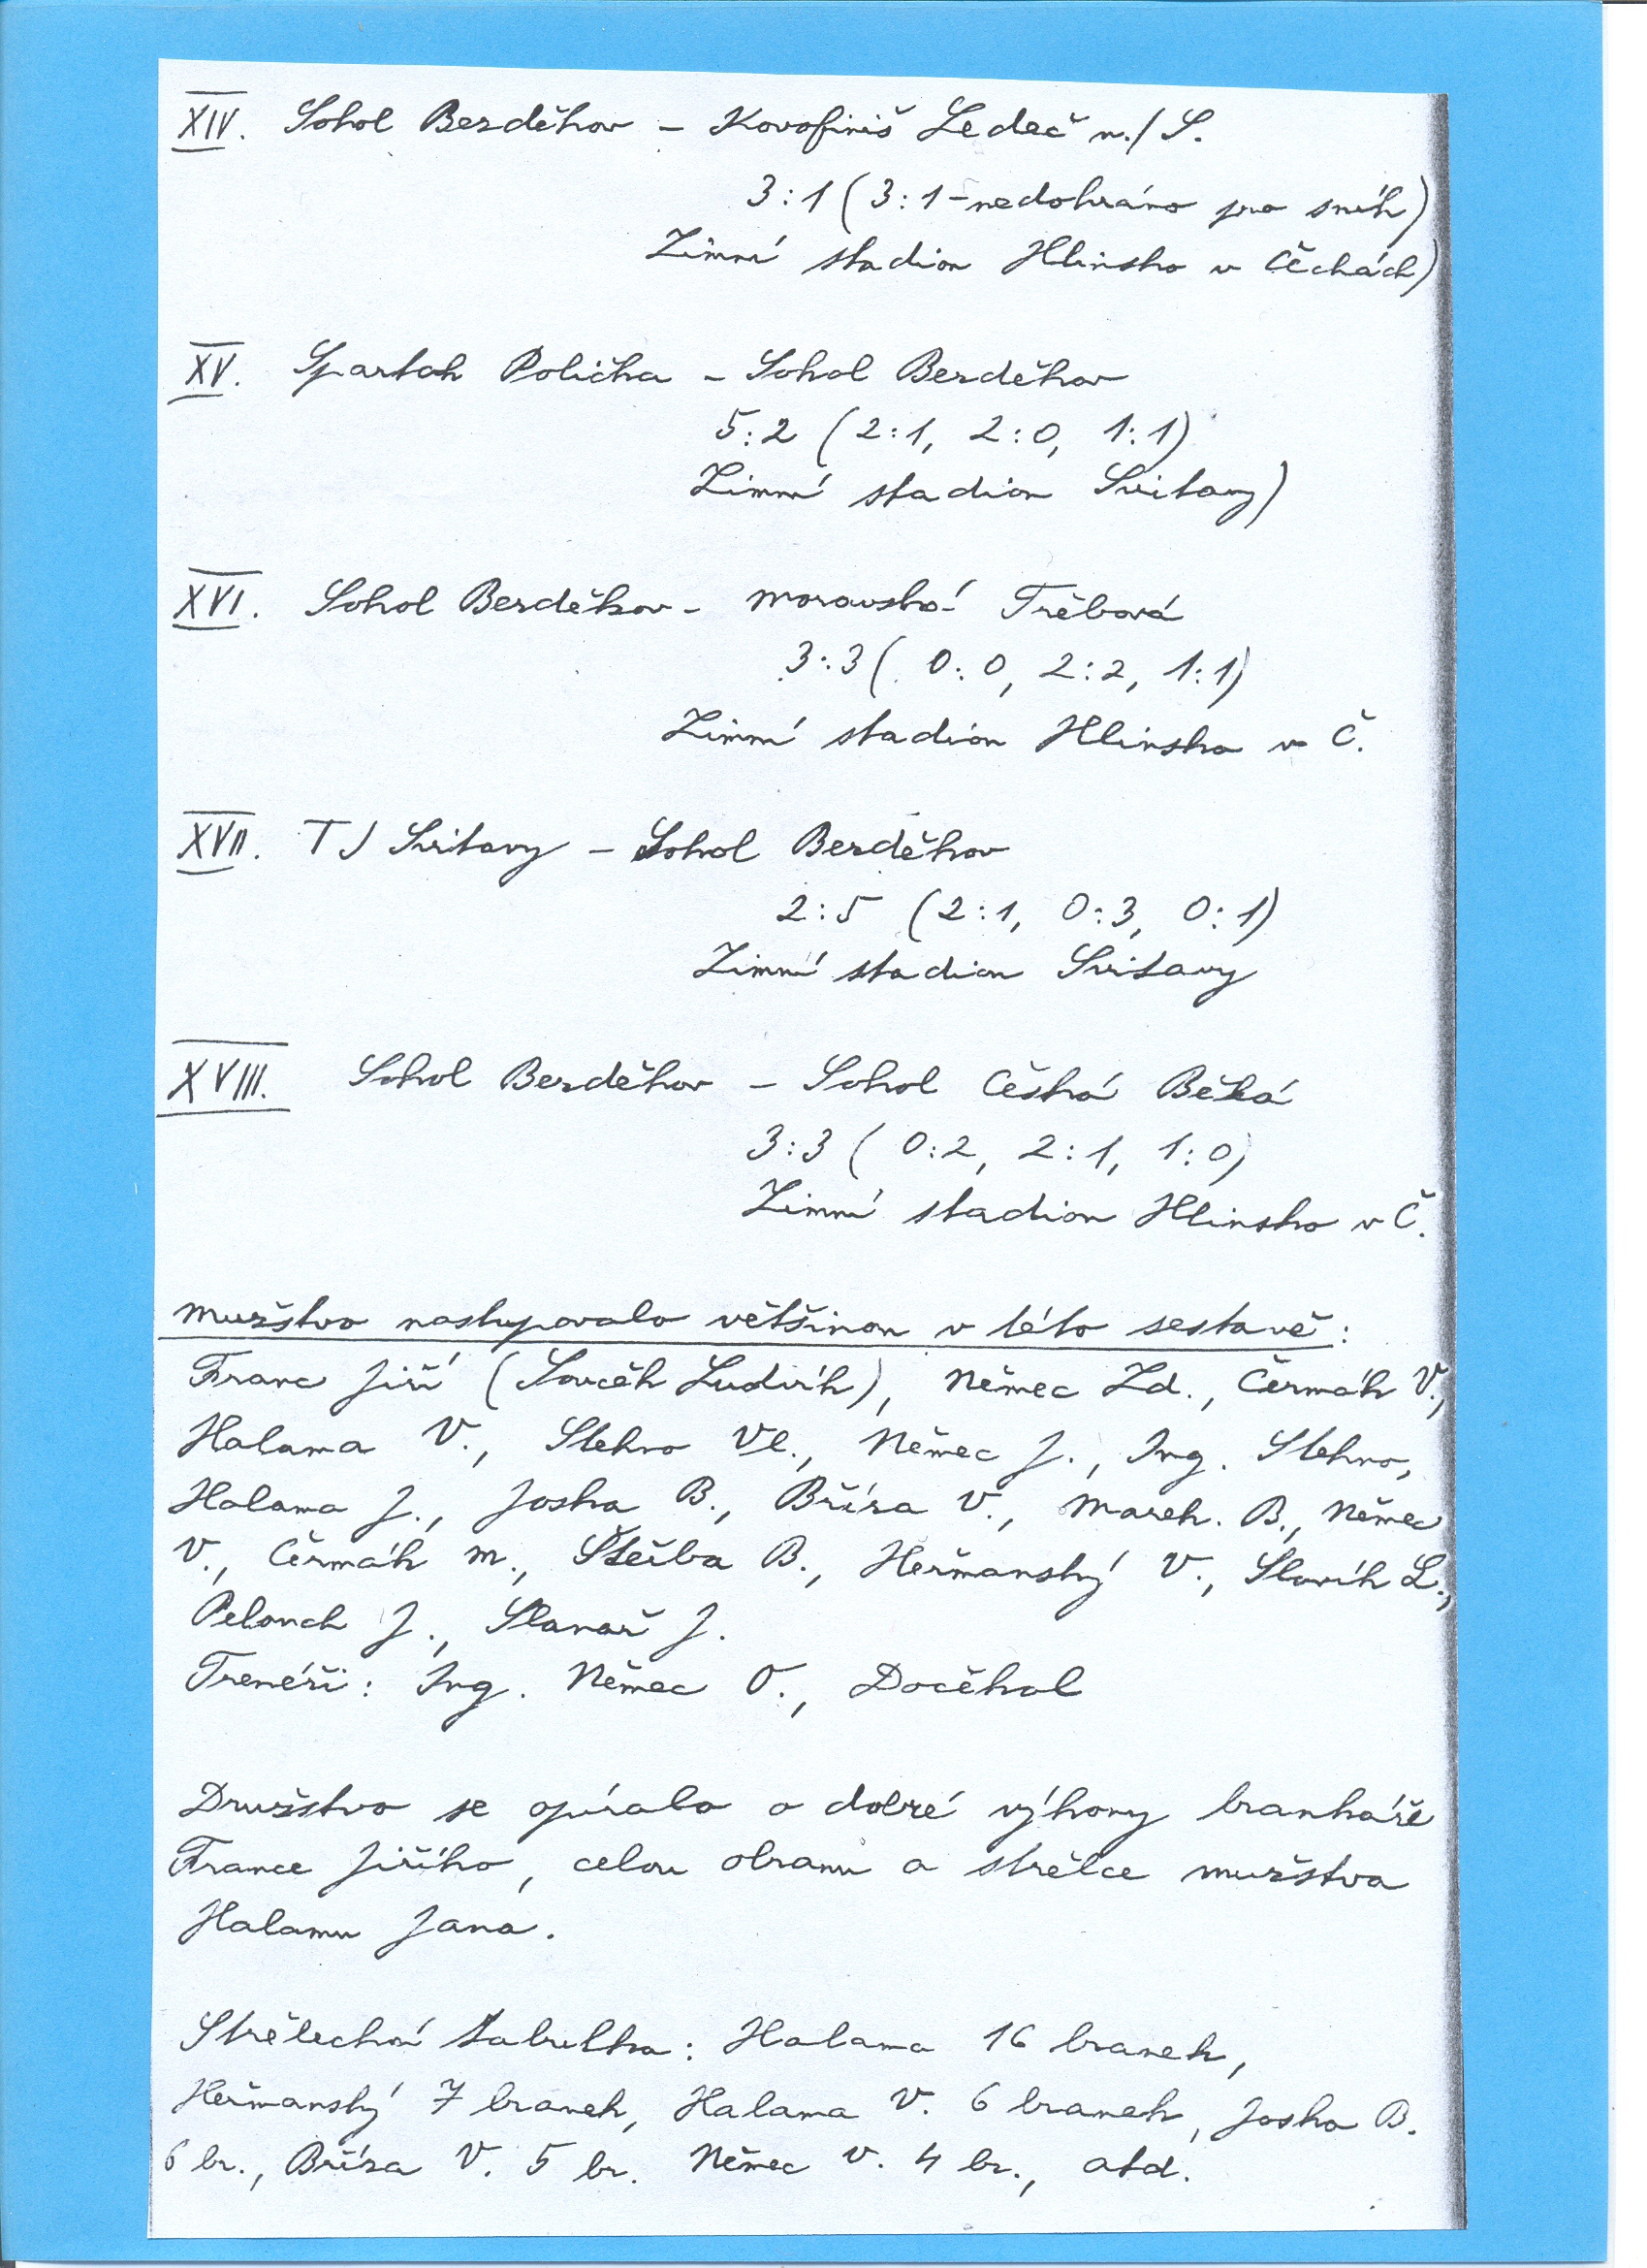 XIV. Sokol Bezděkov - Kovofiniš Ledeč n./S.
3:1 (3:1-nedohráno pro sníh)
Zimní stadion Hlinsko v Čechách)
XV. Spartak Polička - Sokol Bezděkov
5:2 (2:1, 2:0, 1:1)
Zimní stadion Svitavy)
XVI. Sokol Bezděkov - Moravská Třebová
3:3 (0:0, 2:2, 1:1)
Zimní stadion Hlinsko v Č.
XVII. TJ Svitavy - Sokol Bezděkov
2:5 (2:1, 0:3, 0:1)
Zimní stadion Svitavy
XVIII. Sokol Bezděkov - Sokol Česká Bělá
3:3 (0:2, 2:1, 1:0)
Zimní stadion Hlinsko v Č.
Mužstvo nastupovalo většinou v této sestavě:
Franc Jiří (Souček Ludvík), Němec Zd., Čermák V.,
Halama V., Stehno Vl., Němec J., Ing. Stehno,
Halama J., Joska B., Bříza V., Marek. B., Němec
V., Čermák M., Štěrba B., Heřmanský V., Slavík L.,
Pelouch J., Slanař J.
Trenéři: Ing. Němec O., Dočekal
Družstvo se opíralo o dobré výkony brankáře
France Jiřího, celou obranu a střelce mužstva
Halamu Jana.
Střelecká tabulka: Halama 16 branek,
Heřmanský 7 branek, Halama V. 6 branek, Joska B.
6 br., Bříza V. 5 br. Němec V. 4 br., atd.